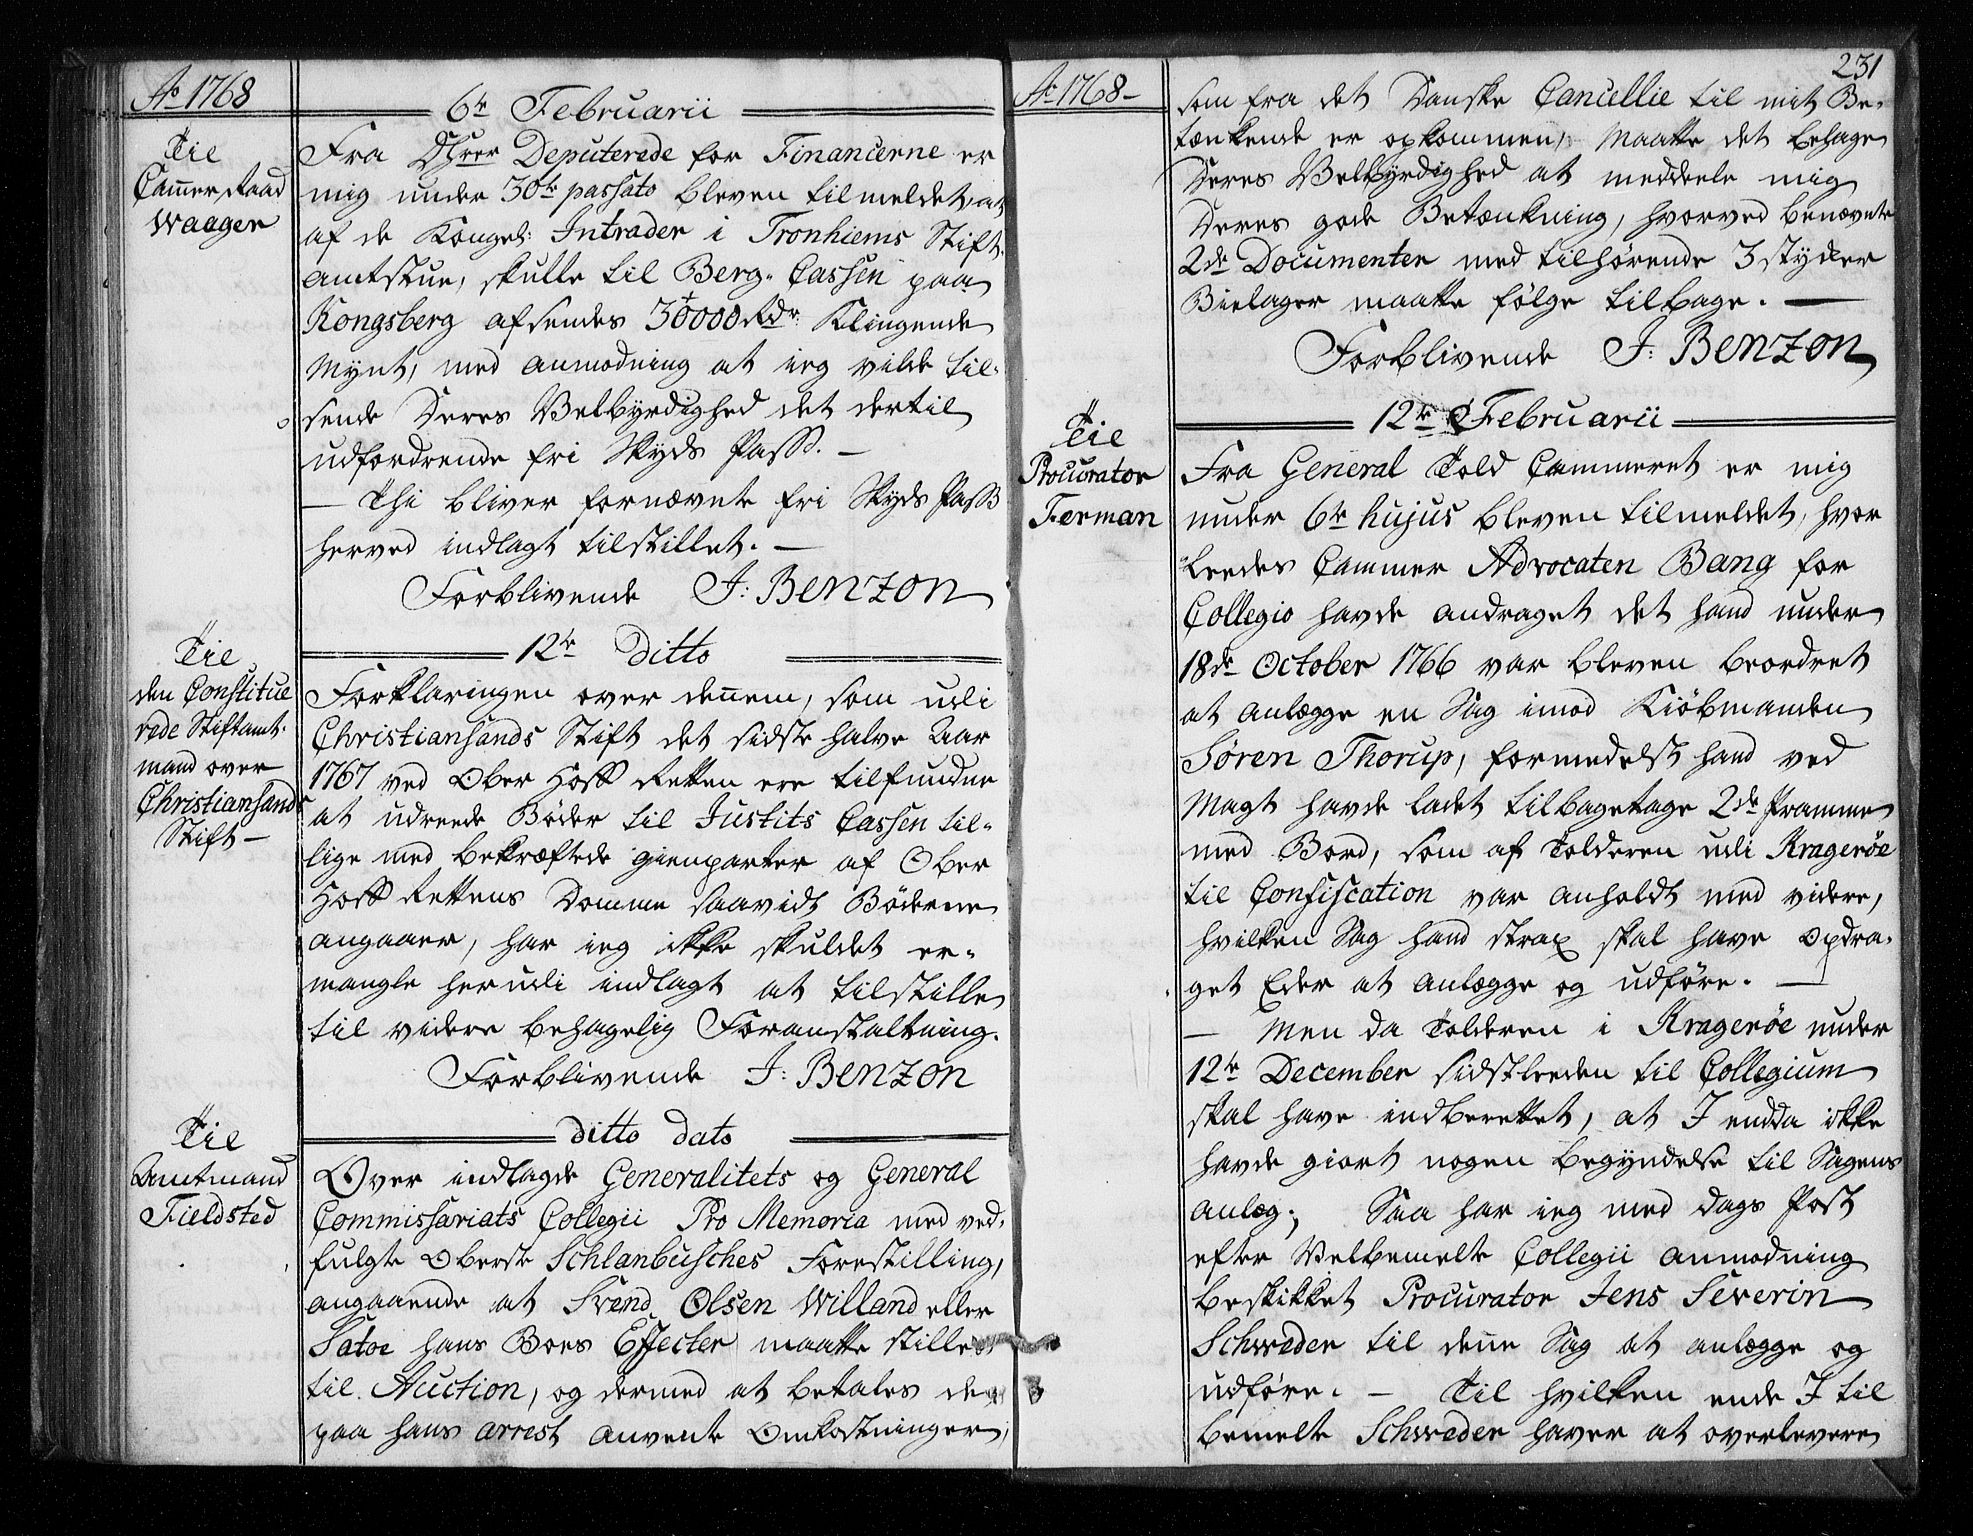 Ao 1768
6te Februarii
Til
Cammer Raad
Waager
Fra DHrer Deputerede for Financerne er
mig under 30te passato bleven tilmeldet, at
af de Kongel: Intrader i Tronhiems Stift
amtstue, skulle til Berg-Cassen paa
Kongsberg afsendes 30000 Rdr Klingende
Mynt, med anmodning at ieg vilde til-
sende Deres Velbyrdighed det dertil
udfordrende fri Skyds Pass. –
– Thi bliver fornævnte fri Skyds Pass
herved indlagt tilstillet. –
Forblivende J: Benzon
12te Ditto
Til
den Constitue
rede Stiftamt-
mand over
Christiansands
Stift –
Forklaringen over dennem, som udi
Christiansands Stift det sidste halve Aar
1767 ved Ober Hoff Retten ere tilfundne
at udreede Bøder til Justits Cassen til-
lige med bekræftede gienparter af Ober
Hoff Rettens Domme saavidt Bøderne
angaaer, har ieg ikke skuldet er-
mangle herudi indlagt at tilstille
til videre behagelig Foranstaltning.
Forblivende J: Benzon
ditto dato
Til
Amtmand
Fieldsted
Over indlagde Generalitets og General
Commissariats Collegii Pro Memoria med ved-
fulgte Oberste Schlanbusches Forestilling,
angaaende at Svend Olsen Willand eller
Satoe hans Boes Effecter maatte stilles
til Auction, og dermed at betales de
paa hans arrest anvente Omkostninger,
Ao 1768 –
231
som fra det Danske Cancellie til mit Be-
tænkende er opkommen, Maatte det behage
Deres Velbyrdighed at meddeele mig
Deres gode Betænkning, hvorved benævnte
2de Documenter med tilhørende 3 stykker
Bielager maatte følge tilbage. –
Forblivende J: Benzon
12te Februarii
Til
Procurator
Ferman
Fra General Told Cammeret er mig
under 6te hujus bleven tilmeldet, hvor
leedes Cammer Advocaten Bang for
Collegio havde andraget det hand under
18de October 1766 var bleven beordret
at anlægge en Sag imod Kiöbmanden
Søren Thorup, formedelst hand ved
Magt havde ladet tilbagetage 2de Pramme
med Bord, som af Tolderen udi Kragerøe
til Confiscation var anholdt med videre,
hvilken Sag hand strax skal have opdra-
get Eder at anlægge og udføre. –
– Men da Tolderen i Kragerøe under
12te December sidstleeden til Collegium
skal have indberettet, at I endda ikke
havde giort nogen begyndelse til Sagens
anlæg; Saa har ieg med dags Post
efter Velbemelte Collegii anmodning
beskikket Procurator Jens Severin
Schweder til denne Sag at anlægge og
udføre. – Til hvilken ende I til
bemelte Schweder haver at overlevere